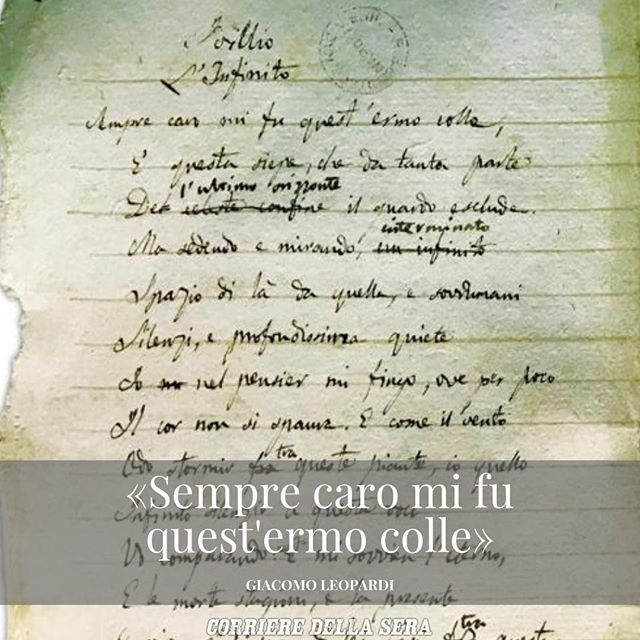 Idillio
L'Infinito
Sempre caro mi fu quest'ermo colle,
E questa siepe, che da tanta parte
l'ultimo orizzonte
Del celeste confine il guardo esclude.
interminato
Ma sedendo e mirando, un infinito
Spazio di là da quella, e sovrumani
Silenzi, e profondissima quiete
Io nel pensier mi fingo, ove per poco
Il cor non si spaura. E come il vento
tra
Odo stormir fra queste piante, io quello
«Sempre caro mi fu
Infinito silenzio a questa voce
quest'ermo colle»
Vo comparando: E mi sovvien l'eterno,
GIACOMO LEOPARDI
E le morte stagioni, e la presente
CORRIERE DELLA SERA
tra
questa